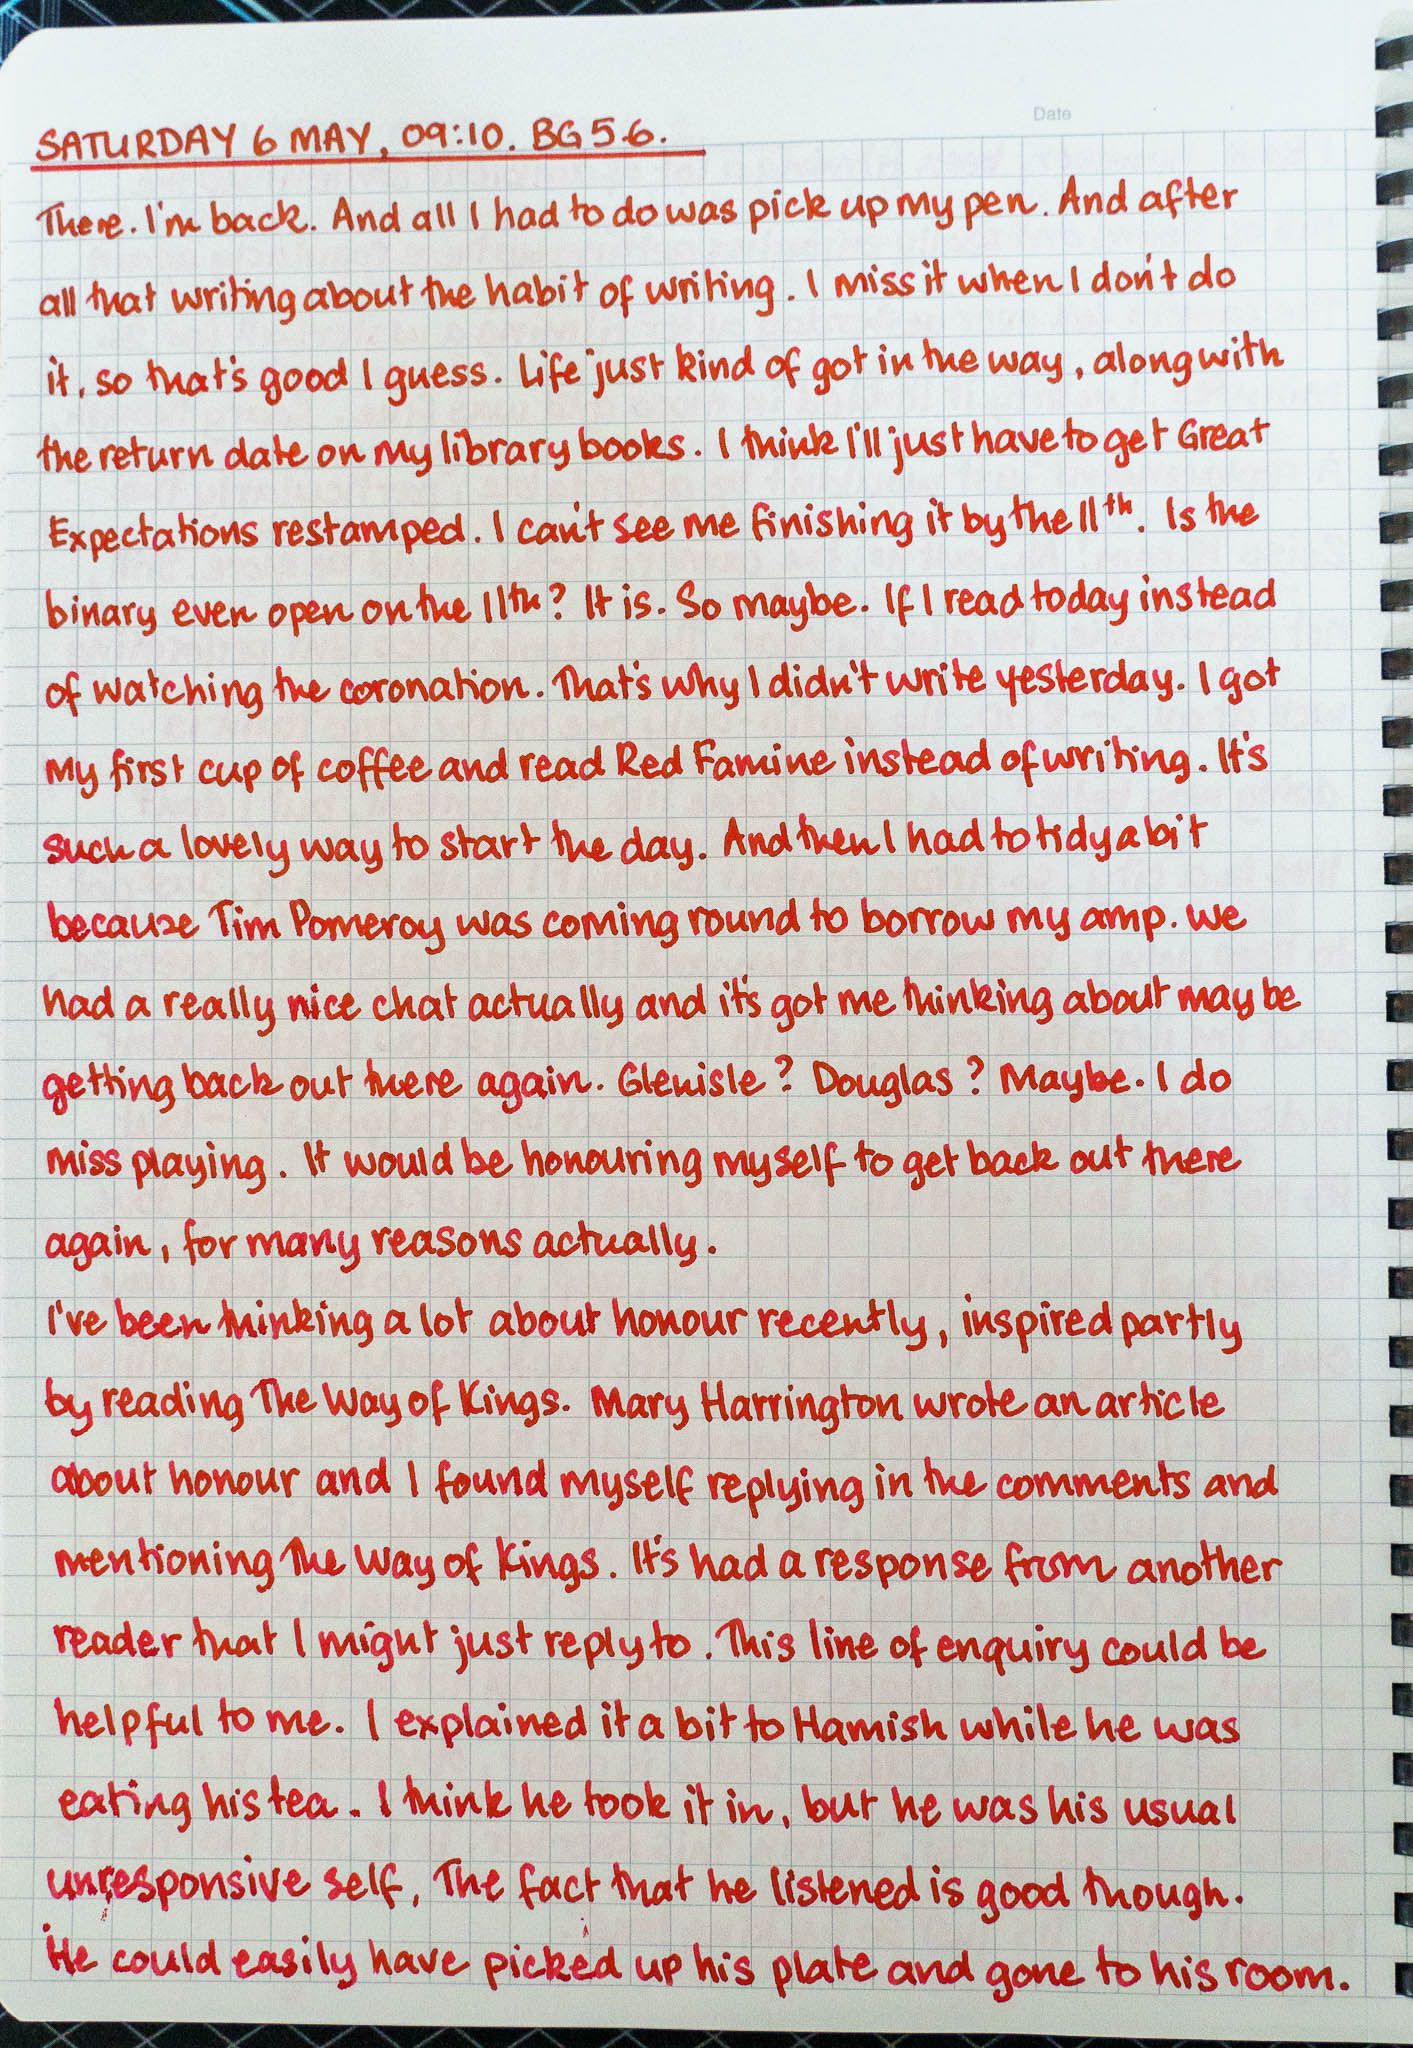 Date
SATURDAY 6 MAY, 09:10. BG 5.6.
There. I'm back. And all I had to do was pick up my pen. And after
all that writing about the habit of writing. I miss it when I don't do
it, so that's good I guess. Life just kind of got in the way, along with
the return date on my library books. I think I'll just have to get Great
Expectations restamped. I can't see me finishing it by the 11th. Is the
binary even open on the 11th? It is. So maybe. If I read today instead
of watching the coronation. That's why I didn't write yesterday. I got
my first cup of coffee and read Red Famine instead of writing. It's
such a lovely way to start the day. And then I had to tidy a bit
because Tim Pomeroy was coming round to borrow my amp. We
had a really nice chat actually and it's got me thinking about maybe
getting back out there again. Glenisle? Douglas? Maybe. I do
miss playing. It would be honouring myself to get back out there
again, for many reasons actually.
I've been thinking a lot about honour recently, inspired partly
by reading The Way of Kings. Mary Harrington wrote an article
about honour and I found myself replying in the comments and
mentioning The Way of Kings. It's had a response from another
reader that I might just reply to. This line of enquiry could be
helpful to me. I explained it a bit to Hamish while he was
eating his tea. I think he took it in, but he was his usual
unresponsive self, The fact that he listened is good though.
He could easily have picked up his plate and gone to his room.